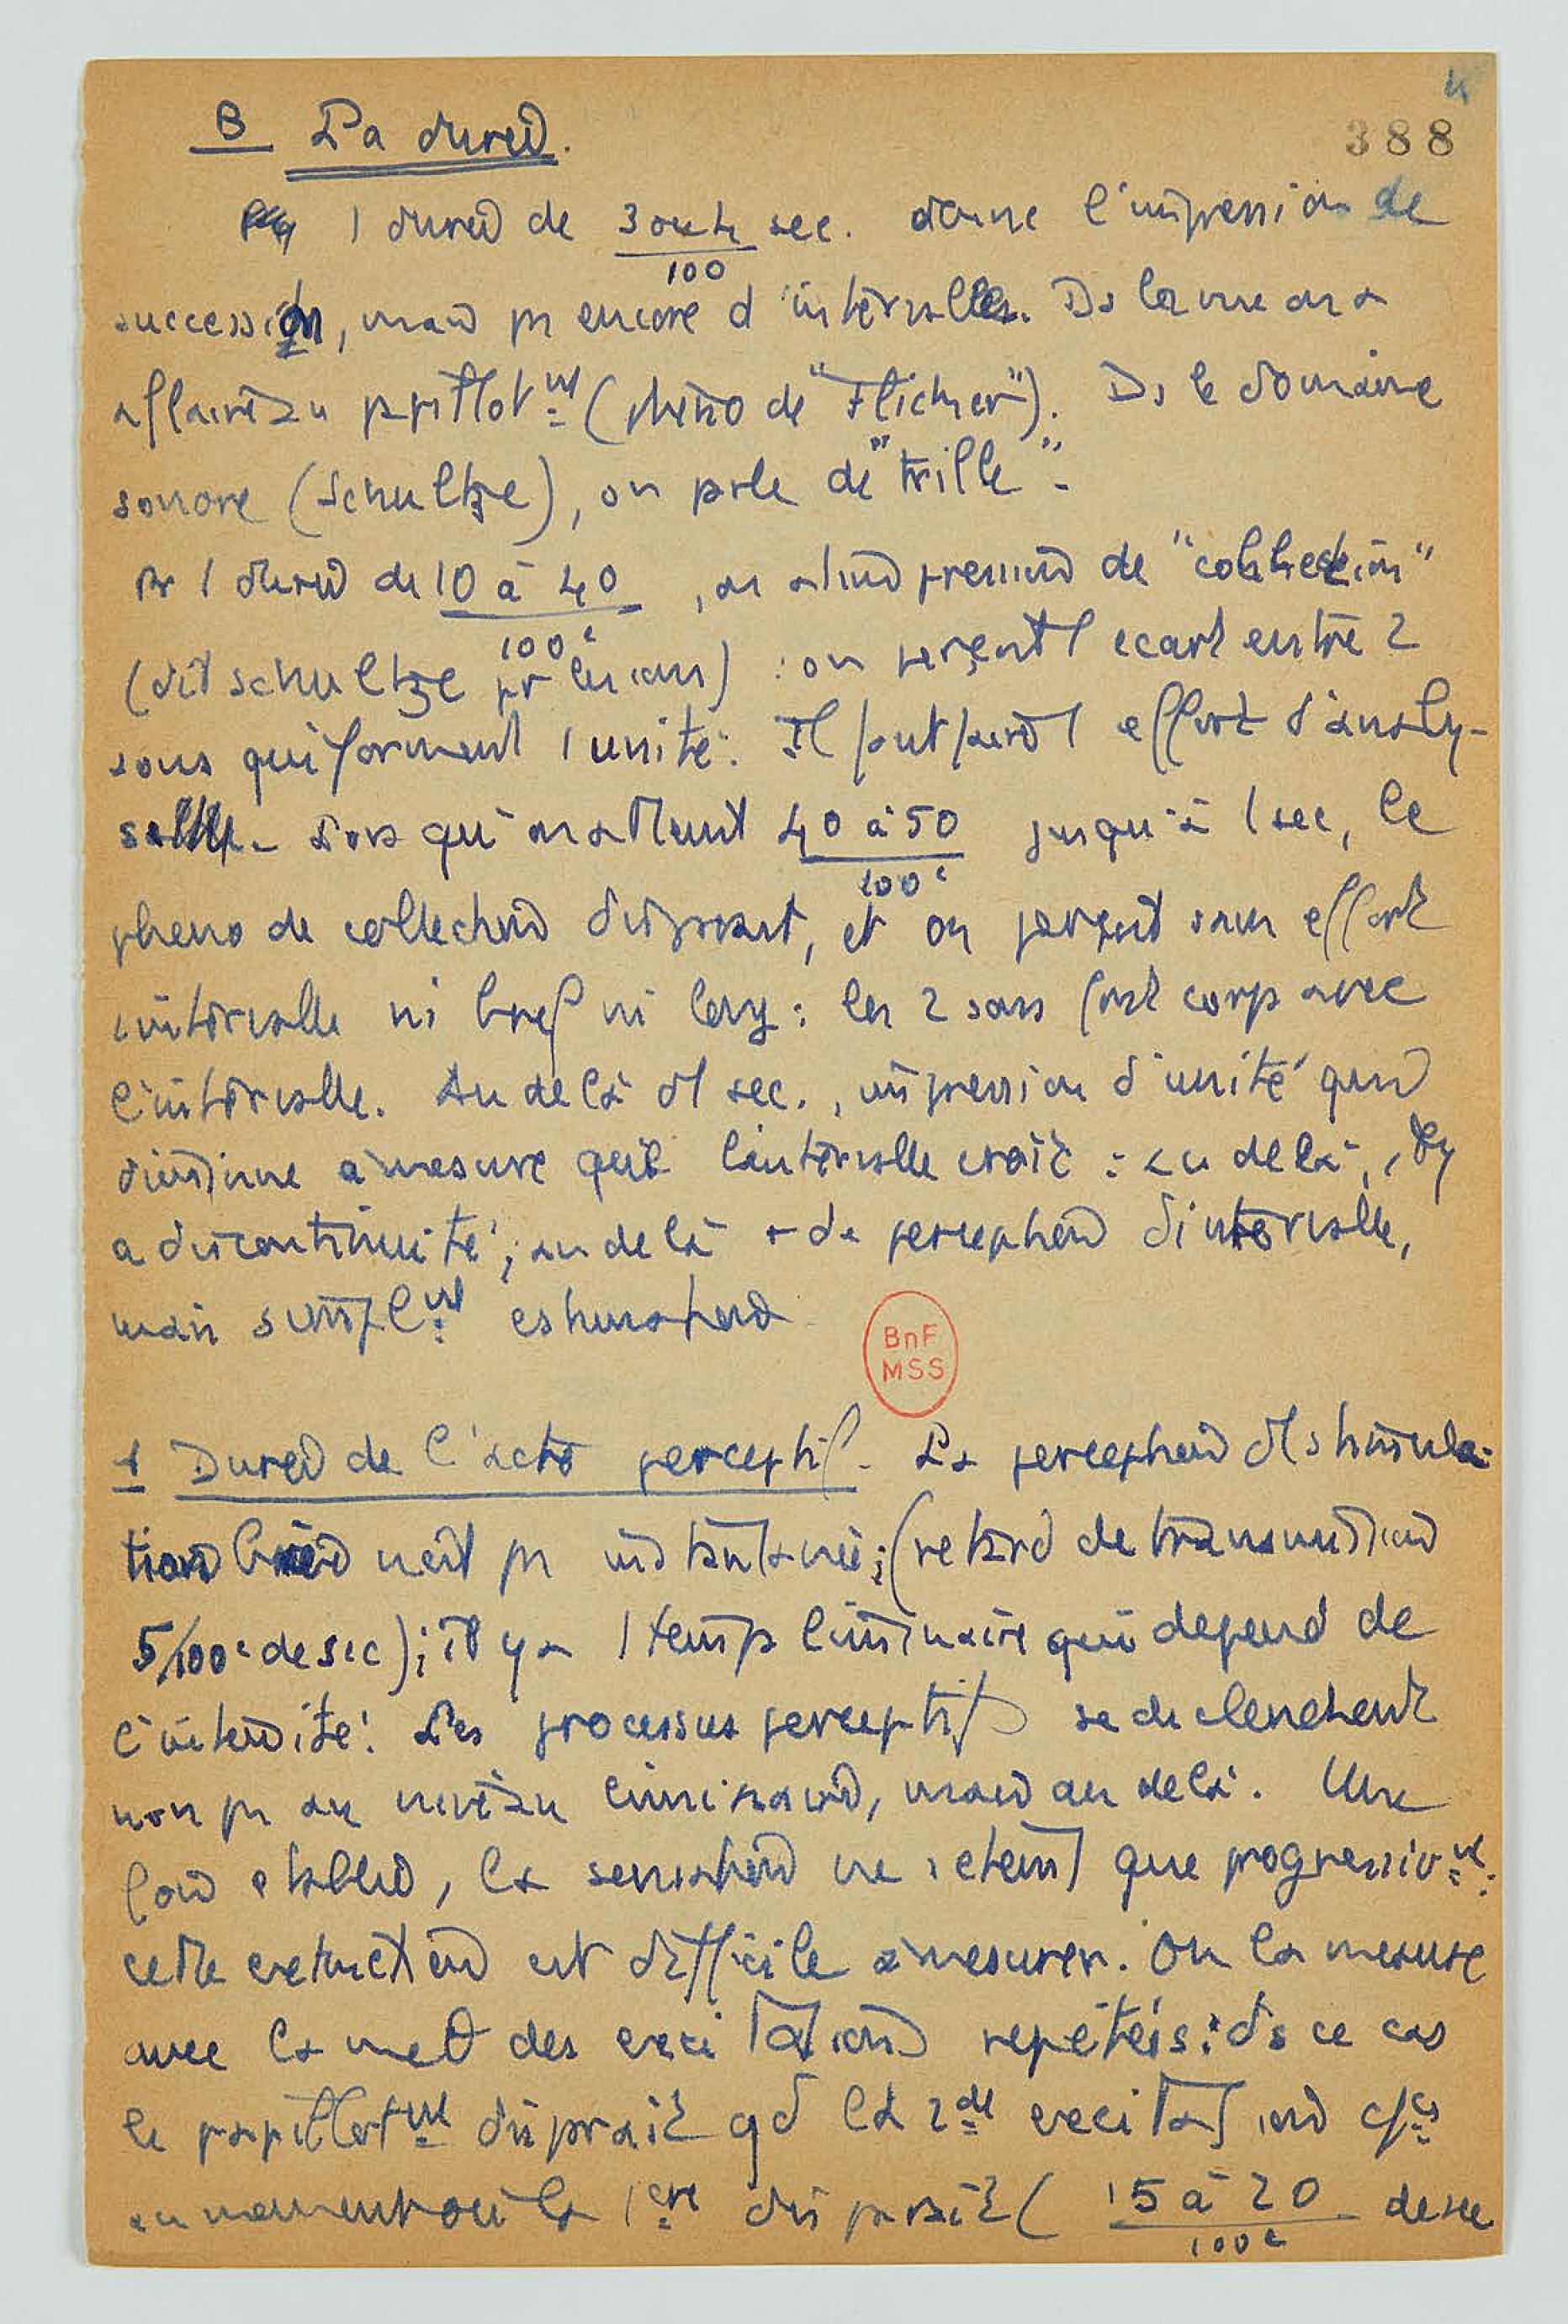 388
B La durée.
1 durée de 3 ou 4/100 sec. donne l'impression de
succession, mais pas encore d'intervalles. Ds la vue on a
affaire au papillot^mt (phéno de "Flicker"). Ds le domaine
sonore (Schultze), on parle de "trille".
Pr 1 durée de 10 à 40/100e, on a l'impression de "collection"
(dit Schultze pr les sons) : on perçoit 1 écart entre 2
sons qui forment 1 unité. Il faut faire 1 effort d'analy-
se. Lorsqu'on atteint 40 à 50/100e jusqu'à 1 sec, le
phéno de collection disparait, et on perçoit sans effort
1 intervalle ni bref ni long : les 2 sons font corps avec
l'intervalle. Au delà d'1 sec., impression d'unité qui
diminue à mesure que l'intervalle croît : au delà, il y
a discontinuité ; au delà + de perception d'intervalle,
mais simpl^mt estimation
BnF
MSS
1 Durée de l'acte perceptif. La perception d'1 stimula-
tion brève n'est pas instantanée ; (retard de transmission
5/100e de sec) ; il y a 1 temps liminaire qui dépend de
l'intensité. Les processus perceptifs se déclenchent
non pas au niveau liminaire, mais au delà. Une
fois établie, la sensation ne s'éteint que progressiv^mt :
cette extinction est difficile à mesurer. On la mesure
avec la met des excitations répétées : ds ce cas
le papillot^mt disparaît qd la 2de excitation
au moment où la 1ère disparaît ( 15 à 20/100e de sec